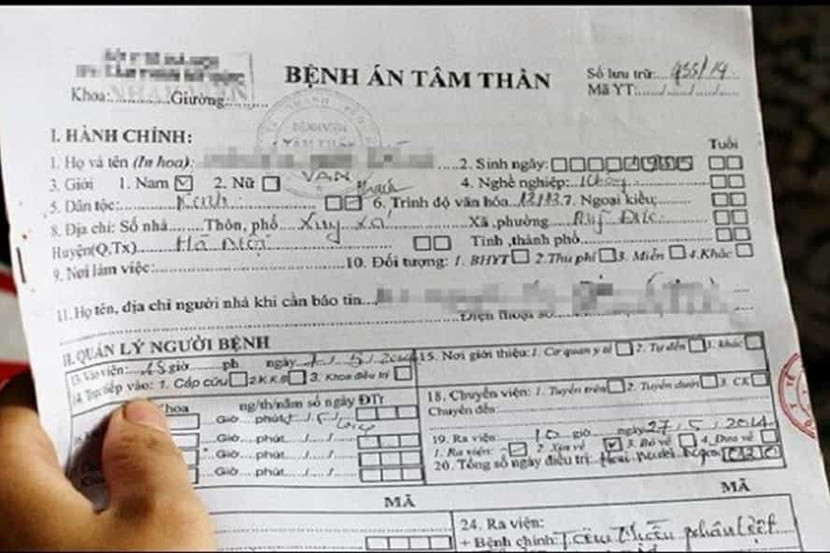 BỆNH ÁN TÂM THẦN
Số lưu trữ: 955/14
Mã YT:...../...../...../.....
Khoa:...............Giường:...............
BỆNH VIỆN
TÂM THẦN
I. HÀNH CHÍNH:
Tuổi
1. Họ và tên (In hoa): VAN 2. Sinh ngày:
3. Giới 1. Nam 2. Nữ 4. Nghề nghiệp: Không
5. Dân tộc: Kinh 6. Trình độ văn hóa: 12/12 7. Ngoại kiều:
8. Địa chỉ: Số nhà Thôn, phố Xuy Xá Xã, phường Mỹ Đức
Huyện(Q,Tx) Hà Nội Tỉnh, thành phố
9. Nơi làm việc: 10. Đối tượng: 1. BHYT 2. Thu phí 3. Miễn 4. Khác
11. Họ tên, địa chỉ người nhà khi cần báo tin
Điện thoại số
II. QUẢN LÝ NGƯỜI BỆNH
giờ ph ngày 7/5/2014 15. Nơi giới thiệu: 1. Cơ quan y tế 2. Tự đến 3. Khác
14. Trực tiếp vào: 1. Cấp cứu 2. K.K.B 3. Khoa điều trị
Khoa ng/th/năm số ngày ĐTr
18. Chuyển viện: 1. Tuyến trên 2. Tuyến dưới 3. CK
Giờ phút
Chuyển đến
Giờ phút
19. Ra viện 10 giờ ngày 27/5/2014
Giờ phút
1. Ra viện 2. Xin về 3. Bỏ về 4. Đưa về
Giờ phút
20. Tổng số ngày điều trị: Hai mươi ngày 020
MÃ
MÃ
24. Ra viện:
+ Bệnh chính: Tâm thần phân liệt